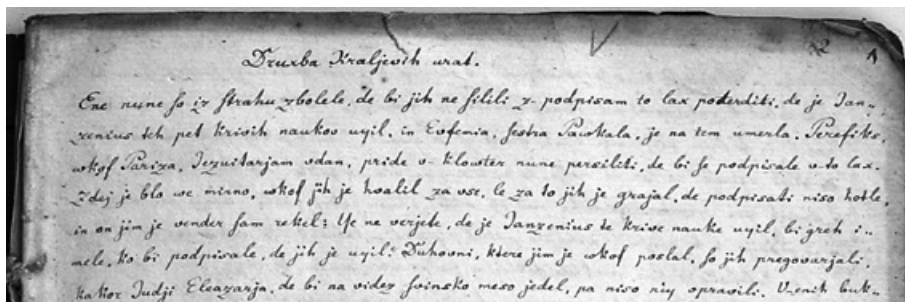 Druxba Kraljevih vrat.
Ene nune so iz strahu zbolele, de bi jih ne silili z- podpisam to lax poterditi, de je Jan-
zenius teh pet krivih naukov uyil, in Evfemia, sestra Paskala, je na tem umerla. Perefiks,
wkof Pariza, Jezuitarjam vdan, pride v- klowter nune persiliti, de bi se podpisale v-to lax.
Zdej je blo vse mirno, wkof jih je hvalil za vse, le za to jih je grajal, de podpisati niso hotle,
in on jim je vender sam rekel: Ye ne verjete, de je Janzenius te krive nauke uyil, bi greh i-
mele, ko bi podpisale, de jih je uyil. Duhovni, ktere jim je wkof poslal, so jih pregovarjali,
kakor Judji Eleazarja, de bi na videz svinsko meso jedel, pa niso niy opravili. V-enih buk-